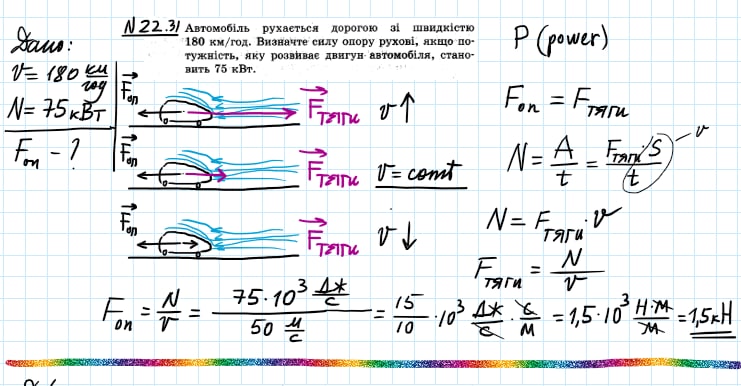 N 22.31 Автомобіль рухається дорогою зі швидкістю
180 км/год. Визначте силу опору рухові, якщо по-
тужність, яку розвиває двигун автомобіля, стано-
вить 75 кВт.
Дано:
v = 180 км/год
N = 75 кВт
F_оп - ?
F_оп F_тяги v↑
F_оп F_тяги v = const
F_оп F_тяги v↓
P (power)
F_оп = F_тяги
N = A/t = F_тяги·S/t v
N = F_тяги·v
F_тяги = N/v
F_оп = N/v = 75·10³ Дж/с / 50 м/с = 15/10 ·10³ Дж/с · с/м = 1,5·10³ Н·м/м = 1,5 кН